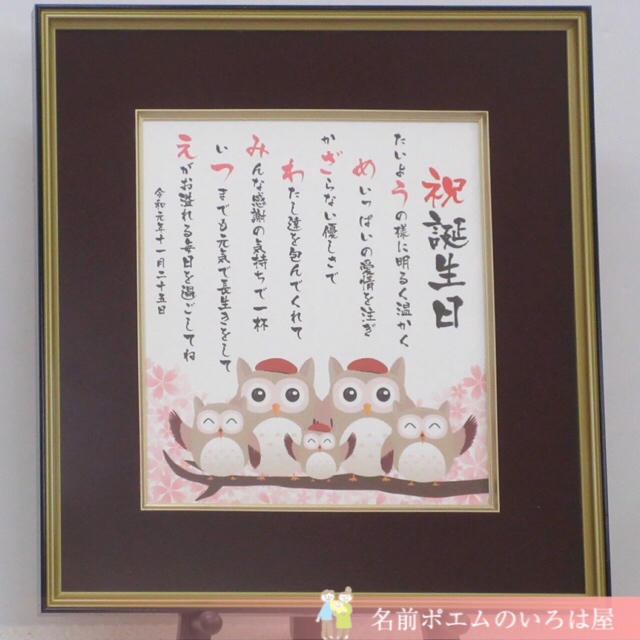 祝誕生日
たいようの様に明るく温かく
めいっぱいの愛情を注ぎ
かざらない優しさで
わたし達を包んでくれて
みんな感謝の気持ちで一杯
いつまでも元気で長生きをして
えがお溢れる毎日を過ごしてね
令和元年十一月二十五日
名前ポエムのいろは屋